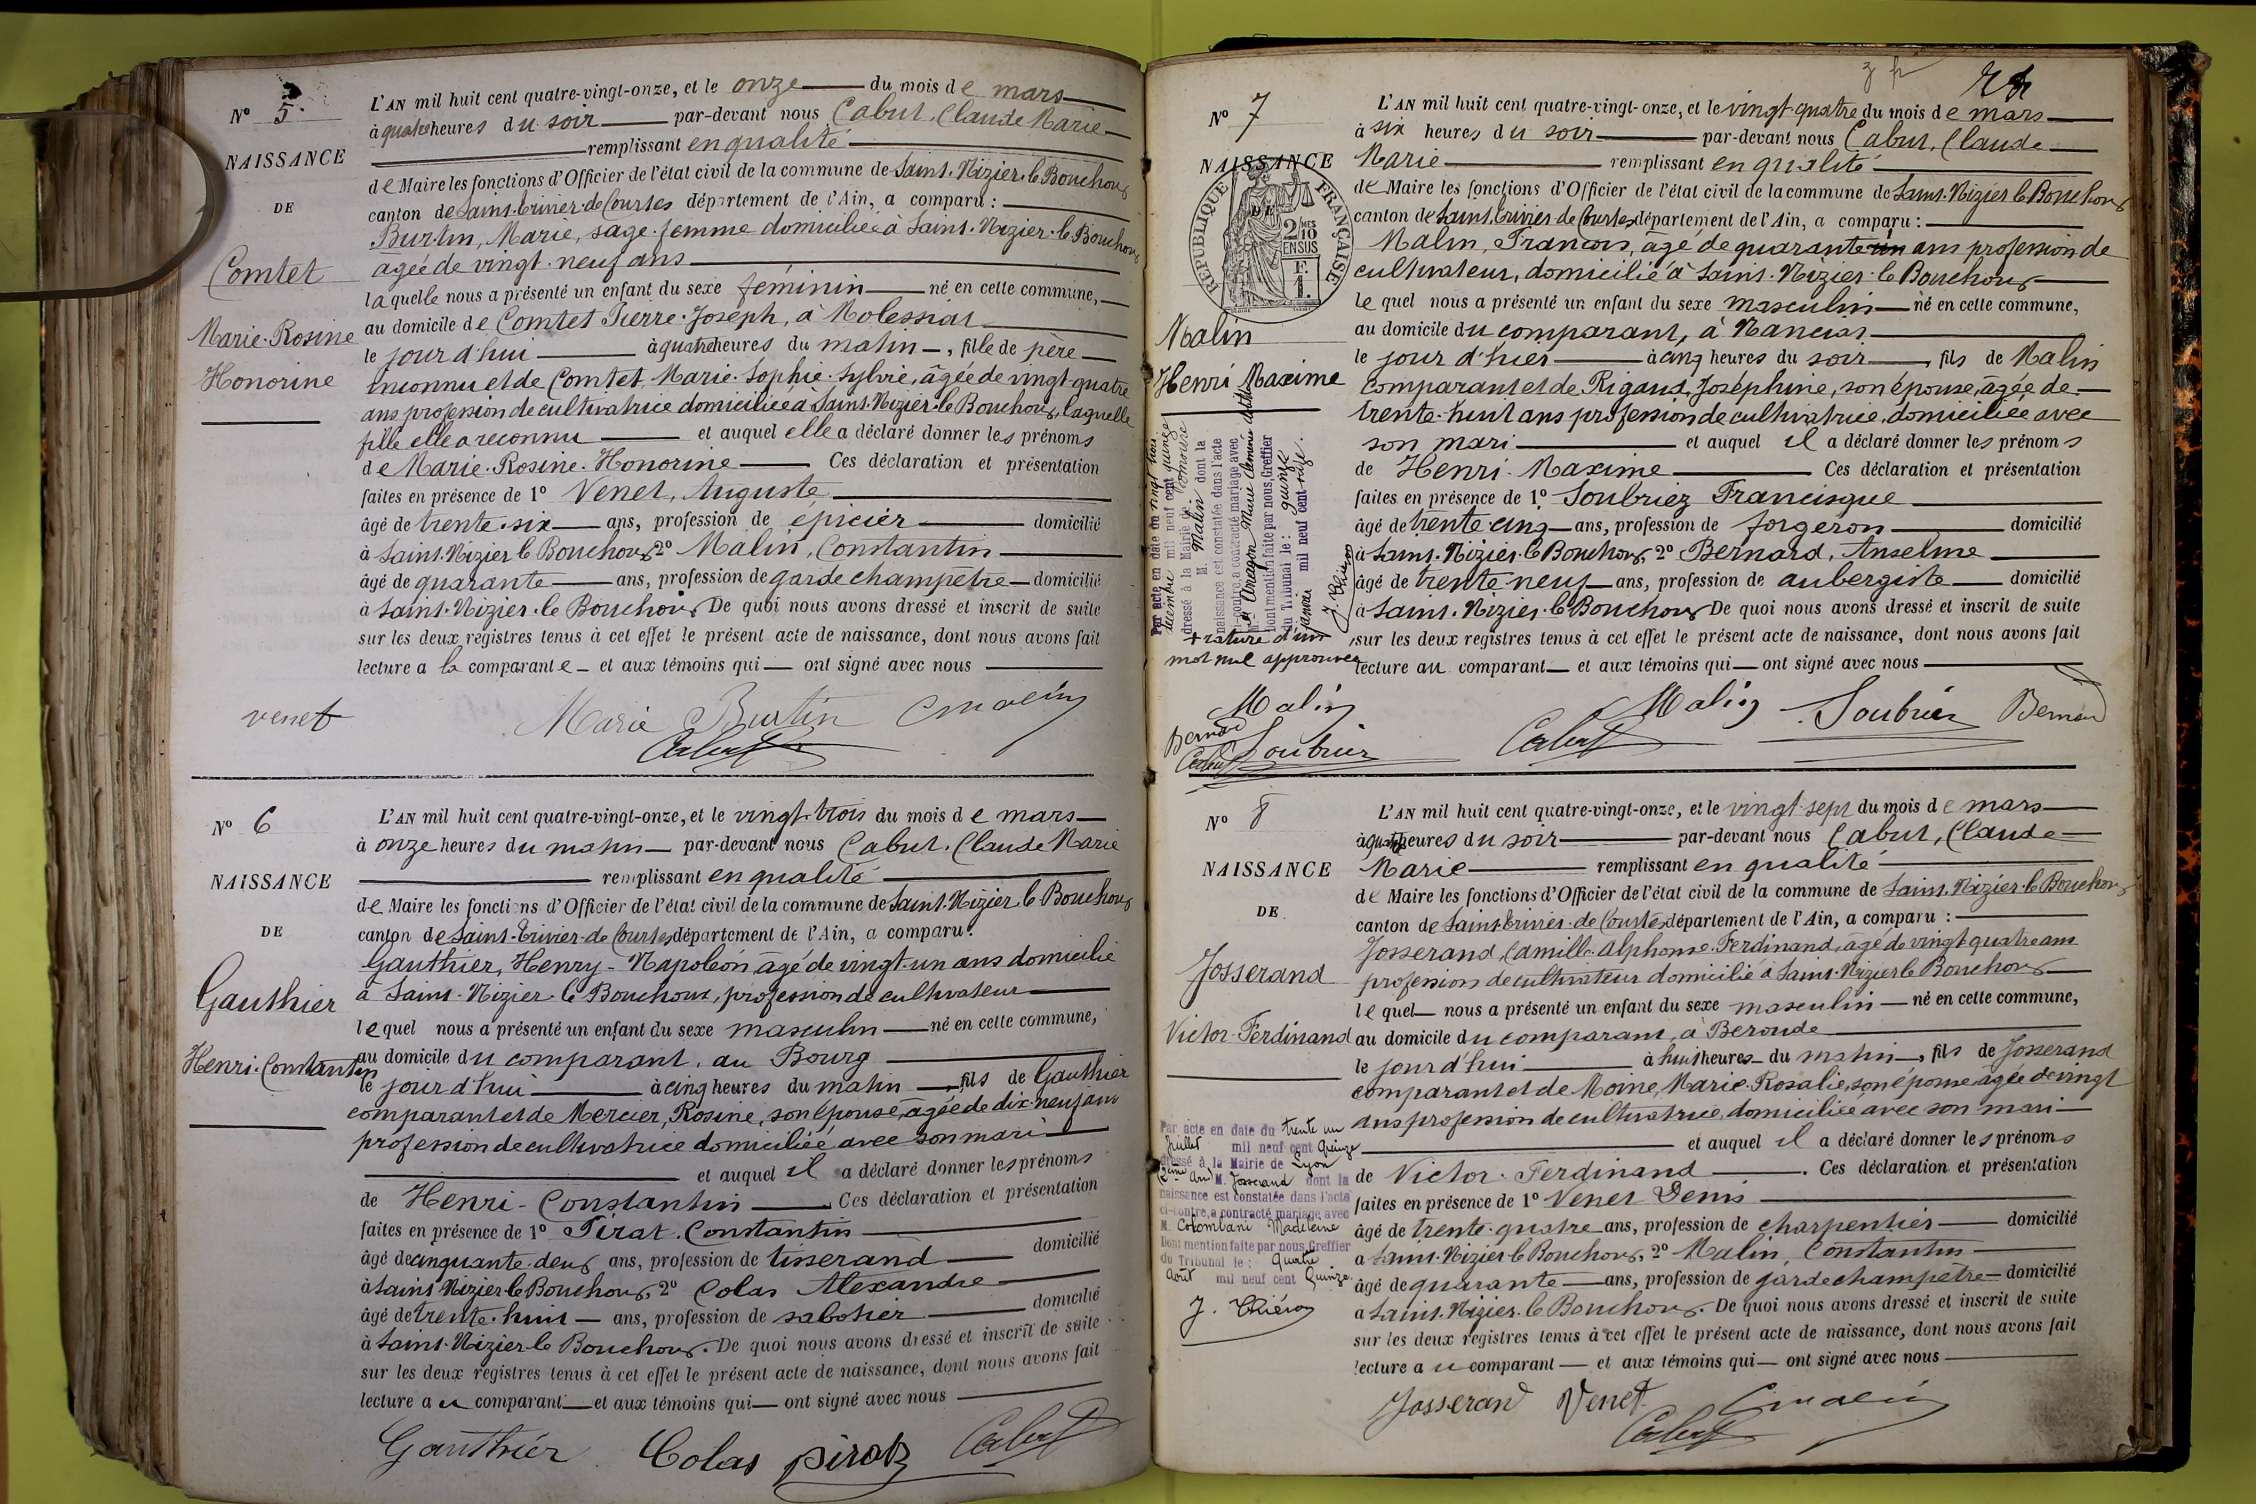 Nº 5.
NAISSANCE
DE
Comtet
Marie-Rosine
Honorine
L'AN mil huit cent quatre-vingt-onze, et le onze du mois de mars
à quatre heures du soir par-devant nous Cabut, Claude Marie
remplissant en qualité
de Maire les fonctions d'Officier de l'état civil de la commune de Saint-Nizier-le-Bouchoux
canton de Saint-Trivier-de-Courtes département de l'Ain, a comparu :
Burtin, Marie, sage-femme domiciliée à Saint-Nizier-le-Bouchoux
âgée de vingt-neuf ans
laquelle nous a présenté un enfant du sexe féminin né en cette commune,
au domicile de Comtet Pierre-Joseph, à Molessiat
le jour d'hui à quatre heures du matin, fille de père
inconnu et de Comtet, Marie-Sophie-Sylvie, âgée de vingt-quatre
ans profession de cultivatrice domiciliée à Saint-Nizier-le-Bouchoux, laquelle
fille elle a reconnu et auquel elle a déclaré donner les prénoms
de Marie-Rosine-Honorine Ces déclaration et présentation
faites en présence de 1º Venet, Auguste
âgé de trente-six ans, profession de épicier domicilié
à Saint-Nizier le Bouchoux, 2º Malin, Constantin
âgé de quarante ans, profession de garde champêtre domicilié
à Saint-Nizier-le Bouchoux De quoi nous avons dressé et inscrit de suite
sur les deux registres tenus à cet effet le présent acte de naissance, dont nous avons fait
lecture a la comparante et aux témoins qui ont signé avec nous
venet Marie Burtin C malin
Cabut
Nº 6
NAISSANCE
DE
Gauthier
Henri-Constantin
L'AN mil huit cent quatre-vingt-onze, et le vingt-trois du mois de mars
à onze heures du matin par-devant nous Cabut, Claude Marie
remplissant en qualité
de Maire les fonctions d'Officier de l'état civil de la commune de Saint-Nizier-le Bouchoux
canton de Saint-Trivier-de-Courtes département de l'Ain, a comparu :
Gauthier, Henry-Napoléon âgé de vingt-un ans domicilié
à Saint-Nizier-le Bouchoux, profession de cultivateur
lequel nous a présenté un enfant du sexe masculin né en cette commune,
au domicile du comparant, au Bourg
le jour d'hui à cinq heures du matin, fils de Gauthier
comparant et de Mercier, Rosine, son épouse, âgée de dix-neuf ans
profession de cultivatrice domiciliée avec son mari
et auquel il a déclaré donner les prénoms
de Henri-Constantin Ces déclaration et présentation
faites en présence de 1º Pirat, Constantin
âgé de cinquante-deux ans, profession de tisserand domicilié
à Saint Nizier-le-Bouchoux, 2º Colas Alexandre
âgé de trente-huit ans, profession de sabotier domicilié
à Saint-Nizier-le Bouchoux. De quoi nous avons dressé et inscrit de suite
sur les deux registres tenus à cet effet le présent acte de naissance, dont nous avons fait
lecture au comparant et aux témoins qui ont signé avec nous
Gauthier Colas Pirat Cabut
Nº 7
NAISSANCE
DE
RÉPUBLIQUE FRANÇAISE
2/10
EN SUS
Malin
Henri Maxime
L'AN mil huit cent quatre-vingt-onze, et le vingt-quatre du mois de mars
à six heures du soir par-devant nous Cabut, Claude
Marie remplissant en qualité
de Maire les fonctions d'Officier de l'état civil de la commune de Saint-Nizier le Bouchoux
canton de Saint-Trivier de Courtes département de l'Ain, a comparu :
Malin, François, âgé de quarante un ans profession de
cultivateur, domicilié à Saint-Nizier-le Bouchoux
lequel nous a présenté un enfant du sexe masculin né en cette commune,
au domicile du comparant, à Nanciat
le jour d'hier à cinq heures du soir fils de Malin
comparant et de Rigaud, Joséphine, son épouse, âgée de
trente-huit ans profession de cultivatrice, domiciliée avec
son mari et auquel il a déclaré donner les prénoms
de Henri-Maxime Ces déclaration et présentation
faites en présence de 1º Soubriez Francisque
âgé de trente cinq ans, profession de forgeron domicilié
à Saint-Nizier-le Bouchoux, 2º Bernard, Anselme
âgé de trente neuf ans, profession de aubergiste domicilié
à Saint-Nizier-le Bouchoux De quoi nous avons dressé et inscrit de suite
sur les deux registres tenus à cet effet le présent acte de naissance, dont nous avons fait
lecture au comparant et aux témoins qui ont signé avec nous
Par acte en date du vingt trois
mil neuf cent quinze
adressé à la Mairie de
M. Malin dont la
naissance est constatée dans l'acte
ci-contre, a contracté mariage avec
Dont mention faite par nous, Greffier
du Tribunal le : quinze
janvier mil neuf cent seize.
+ rature d'un
mot nul approuvée
Malin
Bernard
Cabut Soubrier
Cabut Malin Soubrier Bernard
Nº 8
NAISSANCE
DE
Josserand
Victor-Ferdinand
L'AN mil huit cent quatre-vingt-onze, et le vingt-sept du mois de mars
à quatre heures du soir par-devant nous Cabut, Claude
Marie remplissant en qualité
de Maire les fonctions d'Officier de l'état civil de la commune de Saint-Nizier-le Bouchoux
canton de Saint-Trivier-de Courtes département de l'Ain, a comparu :
Josserand, Camille-Alphonse-Ferdinand, âgé de vingt-quatre ans
profession de cultivateur domicilié à Saint-Nizier le Bouchoux
lequel nous a présenté un enfant du sexe masculin né en cette commune,
au domicile du comparant, à Beroude
le jour d'hui à huit heures du matin, fils de Josserand
comparant et de Moine, Marie-Rosalie, son épouse âgée de vingt
ans profession de cultivatrice, domiciliée avec son mari
et auquel il a déclaré donner les prénoms
de Victor-Ferdinand Ces déclaration et présentation
faites en présence de 1º Venet Denis
âgé de trente-quatre ans, profession de charpentier domicilié
à Saint-Nizier le Bouchoux, 2º Malin, Constantin
âgé de quarante ans, profession de garde champêtre domicilié
à Saint-Nizier-le Bouchoux. De quoi nous avons dressé et inscrit de suite
sur les deux registres tenus à cet effet le présent acte de naissance, dont nous avons fait
lecture au comparant et aux témoins qui ont signé avec nous
Par acte en date du trente un
Juillet mil neuf cent Quinze
dressé à la Mairie de Lyon
(2ème Arr) M. Josserand dont la
naissance est constatée dans l'acte
ci-contre, a contracté mariage avec
M. Colombani Madeleine
Dont mention faite par nous, Greffier
du Tribunal le : Quatre
Août mil neuf cent Quinze.
Josserand Venet C malin
Cabut